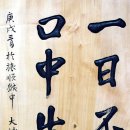 一日不
口中生
庚戌三月於旅順獄中 大